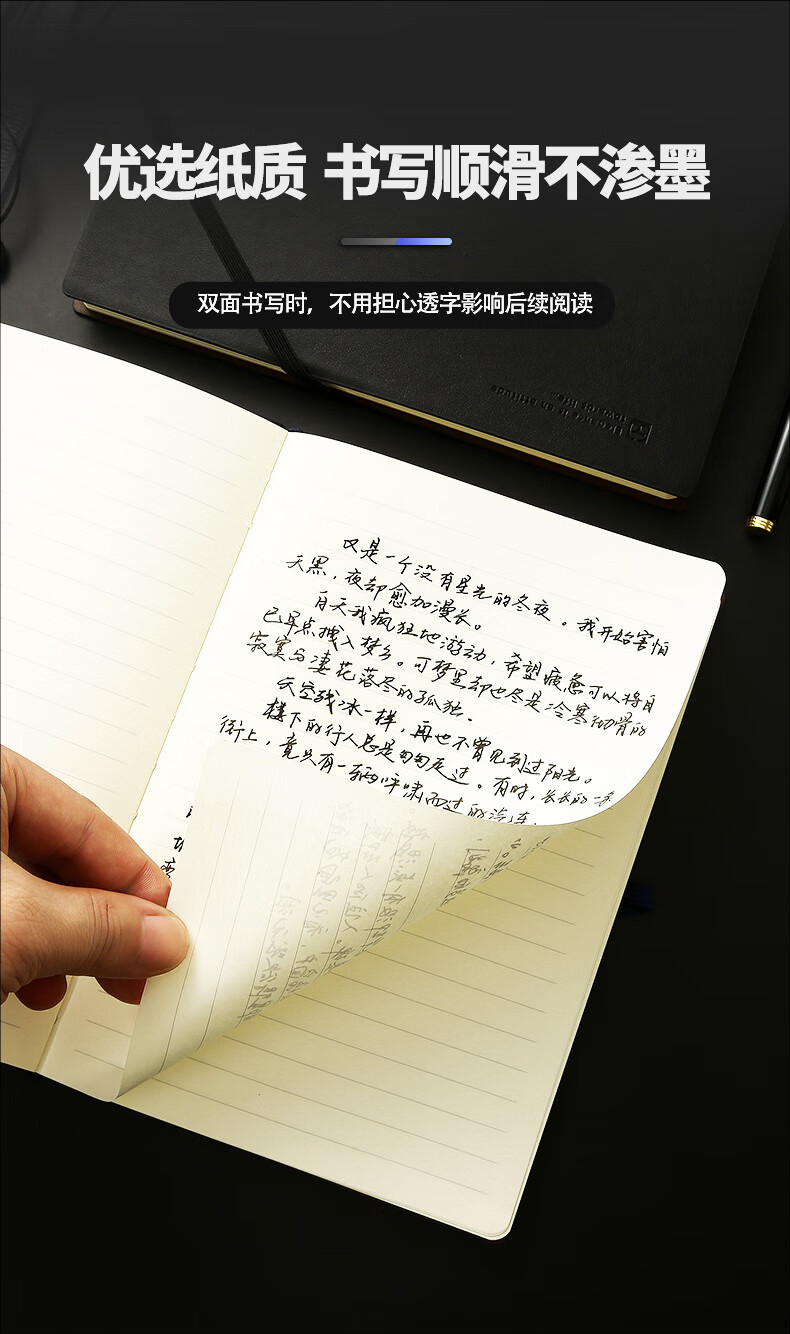 优选纸质 书写顺滑不渗墨
双面书写时，不用担心透字影响后续阅读
Elegance is an attitude
towards life...
又是一个没有星光的冬夜。我开始害怕
天黑，夜却愈加漫长。
白天我疯狂地游动，希望疲惫可以将自
己早点拽入梦乡。可梦里却也尽是冷寒彻骨的
寂寞与凄花落尽的孤独。
天空残冰一样，再也不曾见到过阳光。
楼下的行人总是匆匆走过。有时，长长的一条
街上，竟只有一辆呼啸而过的汽车.